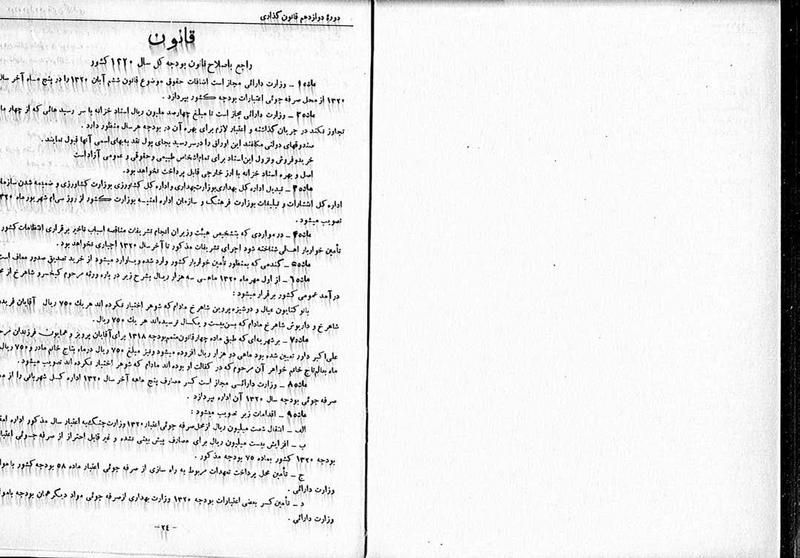 دورهٔ دوازدهم قانون گذاری
قانون
راجع باصلاح قانون بودجه کل سال ۱۳۲۰ کشور
ماده۱ – وزارت دارائی مجاز است اضافات حقوق موضوع قانون ششم آبان ۱۳۲۰ را در پنج ماه آخر سال
۱۳۲۰ از محل صرفه جوئی اعتبارات بودجه کشور بپردازد .
ماده۲ – وزارت دارائی مجاز است تا مبلغ چهارصد ملیون ریال اسناد خزانه با سر رسید هائی که از چهار ماه
تجاوز نکند در جریان گذاشته و اعتبار لازم برای بهره آن در بودجه هر سال منظور دارد .
صندوقهای دولتی مکلفند این اوراق را در سر رسید بجای پول نقد به بهای اسمی آنها قبول نمایند .
خرید و فروش و نزول این اسناد برای تمام اشخاص طبیعی و حقوقی و عمومی آزاد است
اصل و بهره اسناد خزانه با ارز خارجی قابل پرداخت نخواهد بود.
ماده۳ – تبدیل اداره کل بهداری بوزارت بهداری و اداره کل کشاورزی بوزارت کشاورزی و ضمیمه شدن سازمان
اداره کل انتشارات و تبلیغات بوزارت فرهنگ و سازمان اداره امنیه بوزارت کشور از روز سی‌ام شهریور ماه ۱۳۲۰
تصویب میشود .
ماده۴ – در مواردی که بتشخیص هیئت وزیران انجام تشریفات مناقصه اسباب تاخیر برقراری انتظامات کشور
تأمین خواربار اهالی شناخته شود اجرای تشریفات مذکور تا آخر سال ۱۳۲۰ اجباری نخواهد بود .
ماده۵ – گندمی که بمنظور تأمین خواربار کشور وارد شده و یا وارد میشود از خرید تصدیق صدور معاف است
ماده۶ – از اول مهر ماه ۱۳۲۰ ماهی سه هزار ریال بشرح زیر در باره ورثه مرحوم کیخسرو شاهرخ از
درآمد عمومی کشور برقرار میشود :
بانو کتایون عیال و دوشیزه پروین شاهرخ مادام که شوهر اختیار نکرده اند هر یك ۷۵۰ ریال آقایان
شاهرخ و داریوش شاهرخ مادام که بسن بیست و یکسال نرسیده‌اند هر یك ۷۵۰ ریال.
ماده۷ – بر شهریه‌ای که طبق ماده چهار قانون متمم بودجه ۱۳۱۸ برای آقایان پرویز و همایون فرزندان
علی اکبر داور تعیین شده بود ماهی دو هزار ریال افزوده میشود و نیز مبلغ ۷۵۰ ریال در ماه بتاج خانم مادر و ۷۵۰ ریال
ماه بعالمتاج خانم خواهر آن مرحوم که در کفالت او بوده اند مادام که شوهر اختیار نکرده اند تصویب میشود .
ماده۸ – وزارت دارائی مجاز است کسر مصارف پنج ماهه آخر سال ۱۳۲۰ اداره کل شهربانی را از
صرفه جوئی بودجه سال ۱۳۲۰ آن اداره بپردازد .
ماده۹ – اقدامات زیر تصویب میشود :
الف – انتقال شصت میلیون ریال از محل صرفه جوئی اعتبار ۱۳۲۰ وزارت جنگ به اعتبار سال مذکور اداره
ب – افزایش بیست میلیون ریال برای مصارف پیش بینی نشده و غیر قابل احتراز از صرفه جوئی
بودجه ۱۳۲۰ کشور بماده ۷۵ بودجه مذکور .
ج – تأمین محل پرداخت تعهدات مربوط به راه سازی از صرفه جوئی اعتبار ماده ۵۸ بودجه کشور
وزارت دارائی .
د – تأمین کسر بعضی اعتبارات بودجه ۱۳۲۰ وزارت بهداری از صرفه جوئی مواد دیگر همان بودجه
وزارت دارائی .
–۲٤–